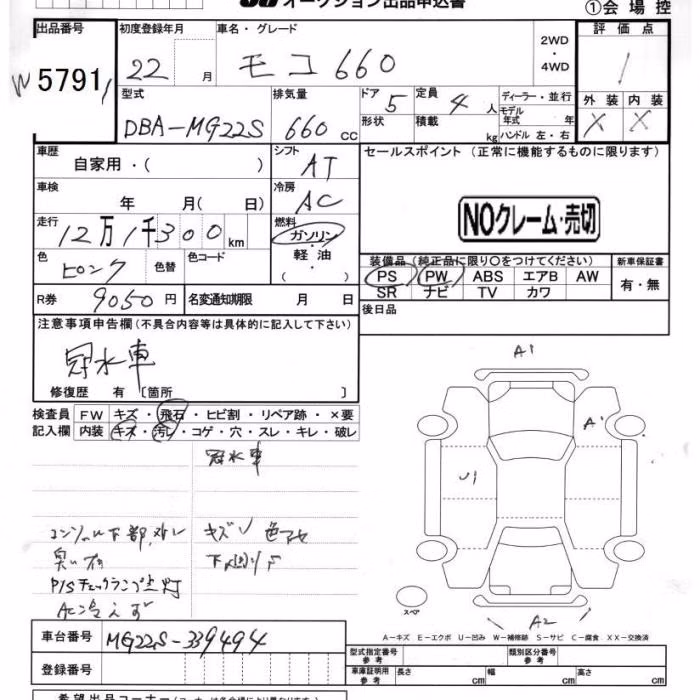 オークション出品申込書
①会場控
出品番号 初度登録年月 車名・グレード 2WD・4WD 評価点
W 5791 22 月 モコ660 1
型式 排気量 ドア 5 定員 4人 ディーラー・並行 外装 内装
DBA-MG22S 660cc 形状 積載 kg モデル年式 年 X X
ハンドル 左・右
車歴 シフト セールスポイント(正常に機能するものに限ります)
自家用・( ) AT
車検 冷房
年 月( 日) AC NOクレーム・売切
走行 燃料
12万1千300km ガソリン・軽油・( )
色 色替 色コード 装備品(純正品に限り○をつけてください) 新車保証書
ピンク PS PW ABS エアB AW 有・無
SR ナビ TV カワ
R券 9050円 名変通知期限 月 日 後日品
注意事項申告欄(不具合内容等は具体的に記入して下さい)
冠水車
修復歴 有 〔箇所 〕
A1
検査員 FW キズ・飛石・ヒビ割・リペア跡・×要
記入欄 内装 キズ・汚レ・コゲ・穴・スレ・キレ・破レ
A1
冠水車
U1
コンソール下部外レ キズソ 色アセ
臭い有 下廻りサ
P/Sチェックランプ点灯
AC冷えず
スペア
A2
A-キズ E-エクボ U-凹み W-補修跡 S-サビ C-腐食 XX-交換済
車台番号 MG22S-339494
型式指定番号 参考 類別区分番号 参考
登録番号 車庫証明用 参考 長さ cm 幅 cm 高さ cm
希望出品コーナー